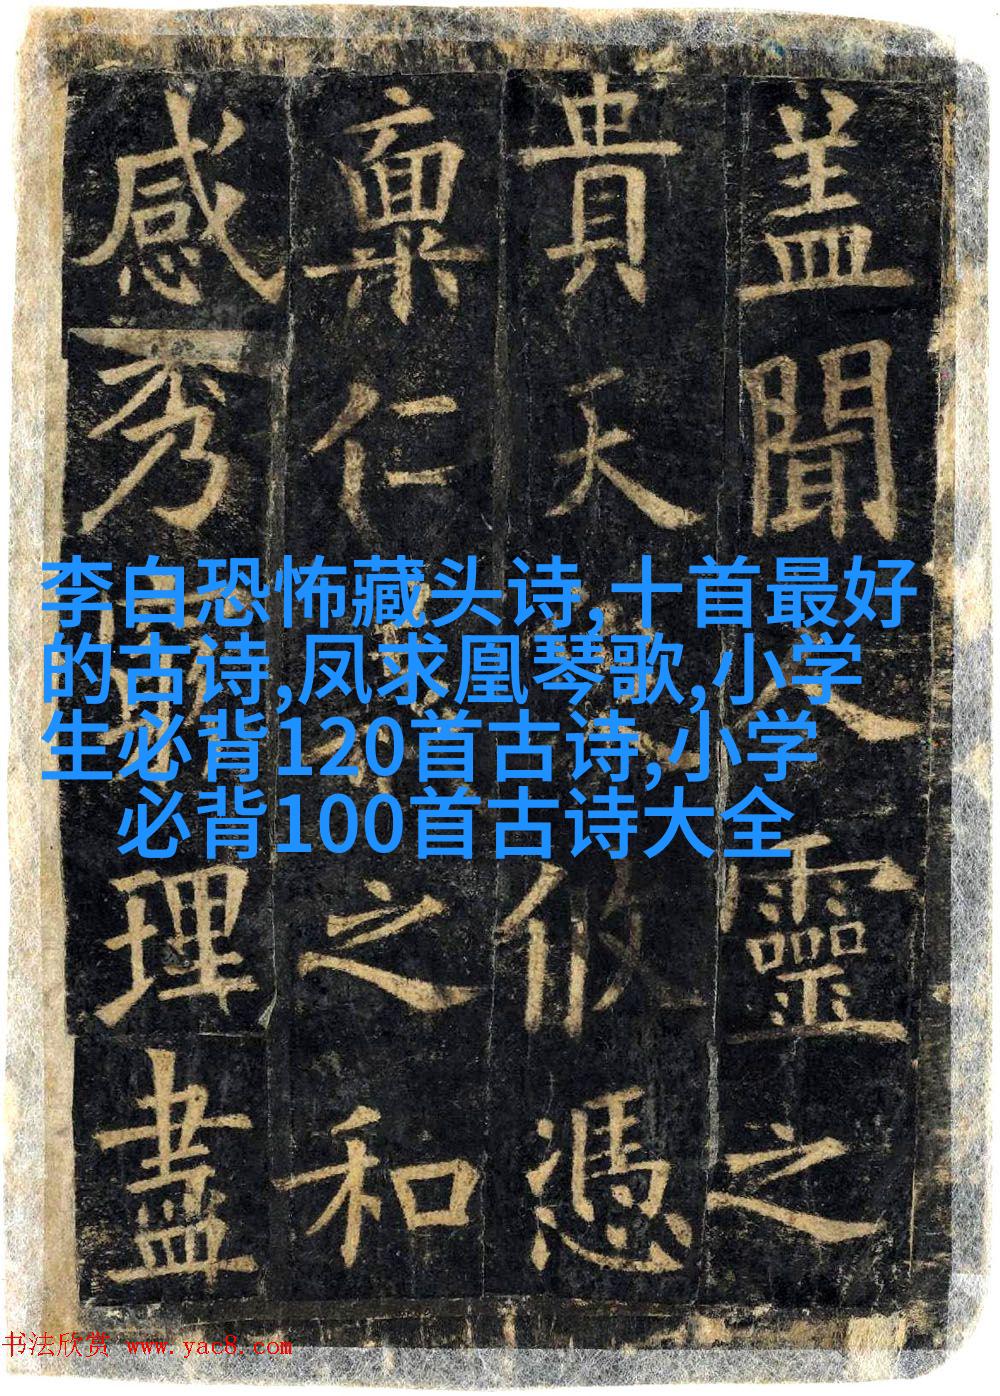 盖聞人靈之
貴天攸憑
稟仁之和
感秀理盡
李白恐怖藏头诗,十首最好
的古诗,凤求凰琴歌,小学
生必背120首古诗,小学
必背100首古诗大全
书法欣赏 www.yac8.com